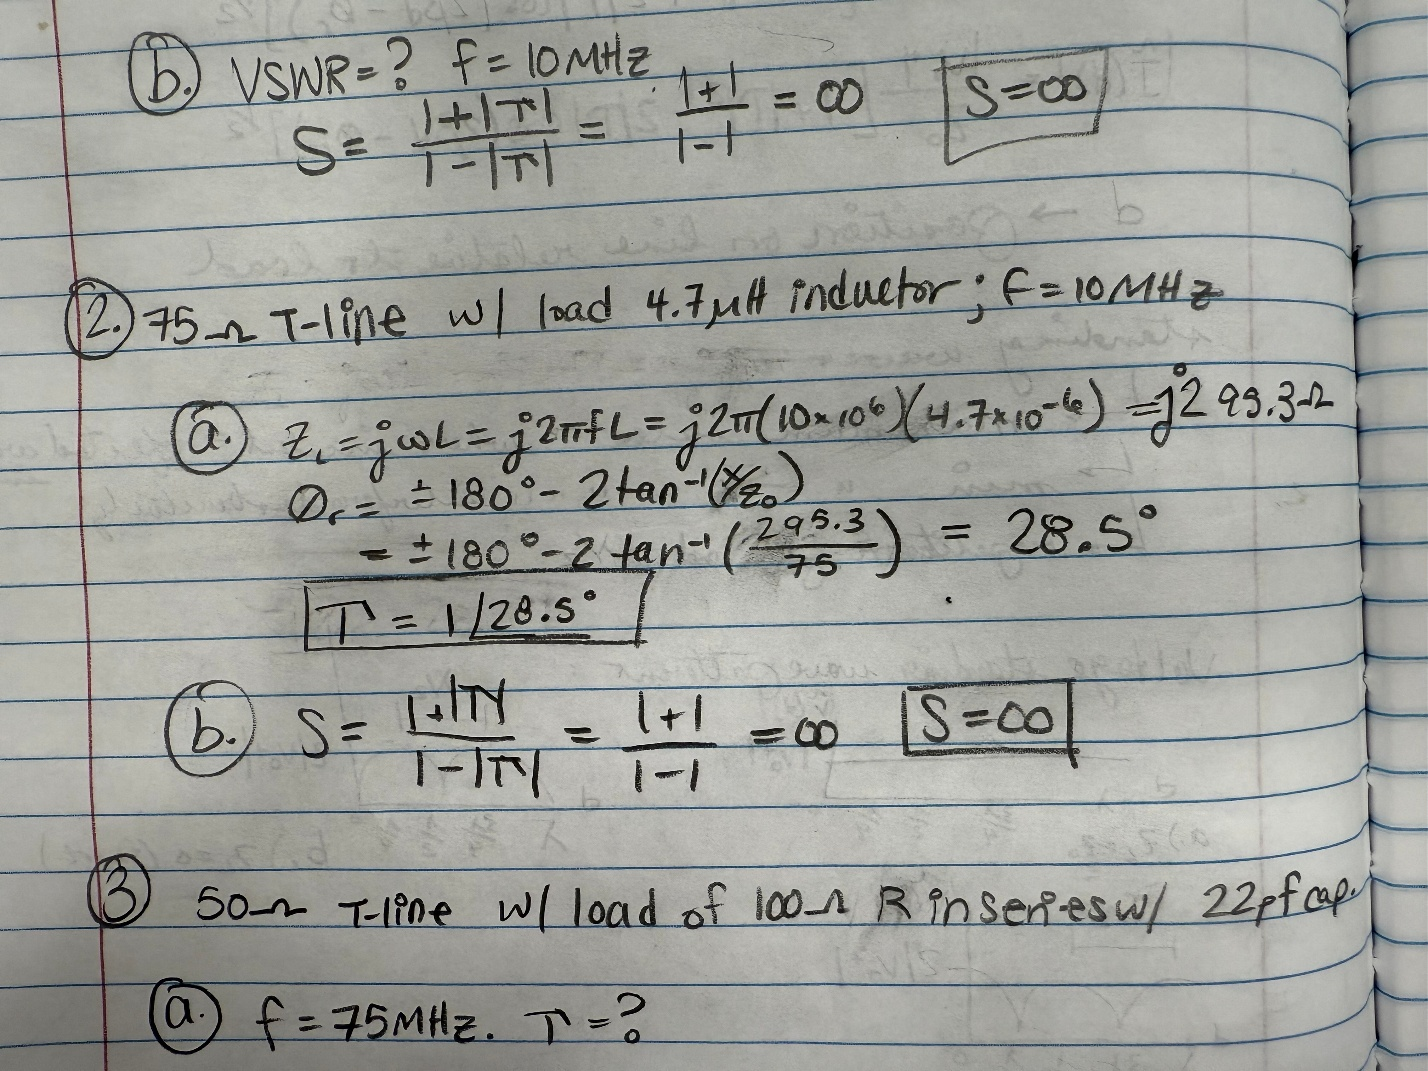 b. VSWR=? f=10MHz
S= 1+|Γ|/1-|Γ| = 1+1/1-1 = ∞ S=∞
2. 75Ω T-line w/ load 4.7μH inductor; f=10MHz
a. Z_L=jωL=j2πfL=j2π(10×10⁶)(4.7×10⁻⁶)=j295.3Ω
Θr= ±180°-2tan⁻¹(X/Z₀)
= ±180°-2 tan⁻¹(295.3/75) = 28.5°
Γ = 1/28.5°
b. S= 1+|Γ|/1-|Γ| = 1+1/1-1 =∞ S=∞
3 50Ω T-line w/ load of 100Ω R in series w/ 22pf cap.
a. f=75MHz. Γ=?